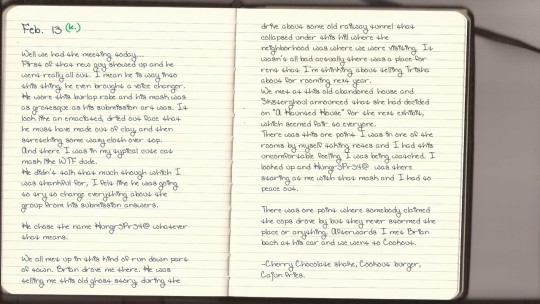 Feb. 13 (k.)
Well we had the meeting today...
First of that new guy showed up and he
went really all out. I mean he is way into
this thing, he even brought a voice changer.
He wore this burlap robe and his mask was
as grotesque as his submission art was. It
look like an emaciated, dried out face that
he must have made out of clay, and then
stretching some waxy cloth over top.
And there I was in my typical cute cat
mask like WTF dude.
He didn't talk that much though which I
was thankful for, I felt like he was going
to try to change everything about the
group from his submission answers.
He chose the name Hungr3Pr3t@ whatever
that means.
We all met up in this kind of run down part
of town. Brian drove me there. He was
telling me this old ghost story during the
drive about some old railway tunnel that
collapsed under this hill where the
neighborhood was where we were visiting. It
wasn't all bad actually there was a place for
rent that I'm thinking about telling Trisha
about for rooming next year.
We met at this old abandoned house and
announced that she had decided
on "A Haunted House" for the next exhibit,
which seemed fair to everyone.
There was this one point I was in one of the
rooms by myself taking notes and I had this
uncomfortable feeling I was being watched. I
looked up and Hungr3Pr3t@ was there
staring at me with that mask and I had to
peace out.
There was one point where somebody claimed
the cops drove by but they never stormed the
place or anything. Afterwards I met Brian
back at his car and we went to Cookout.
-Cherry Chocolate shake, Cookout burger,
Cajun fries.